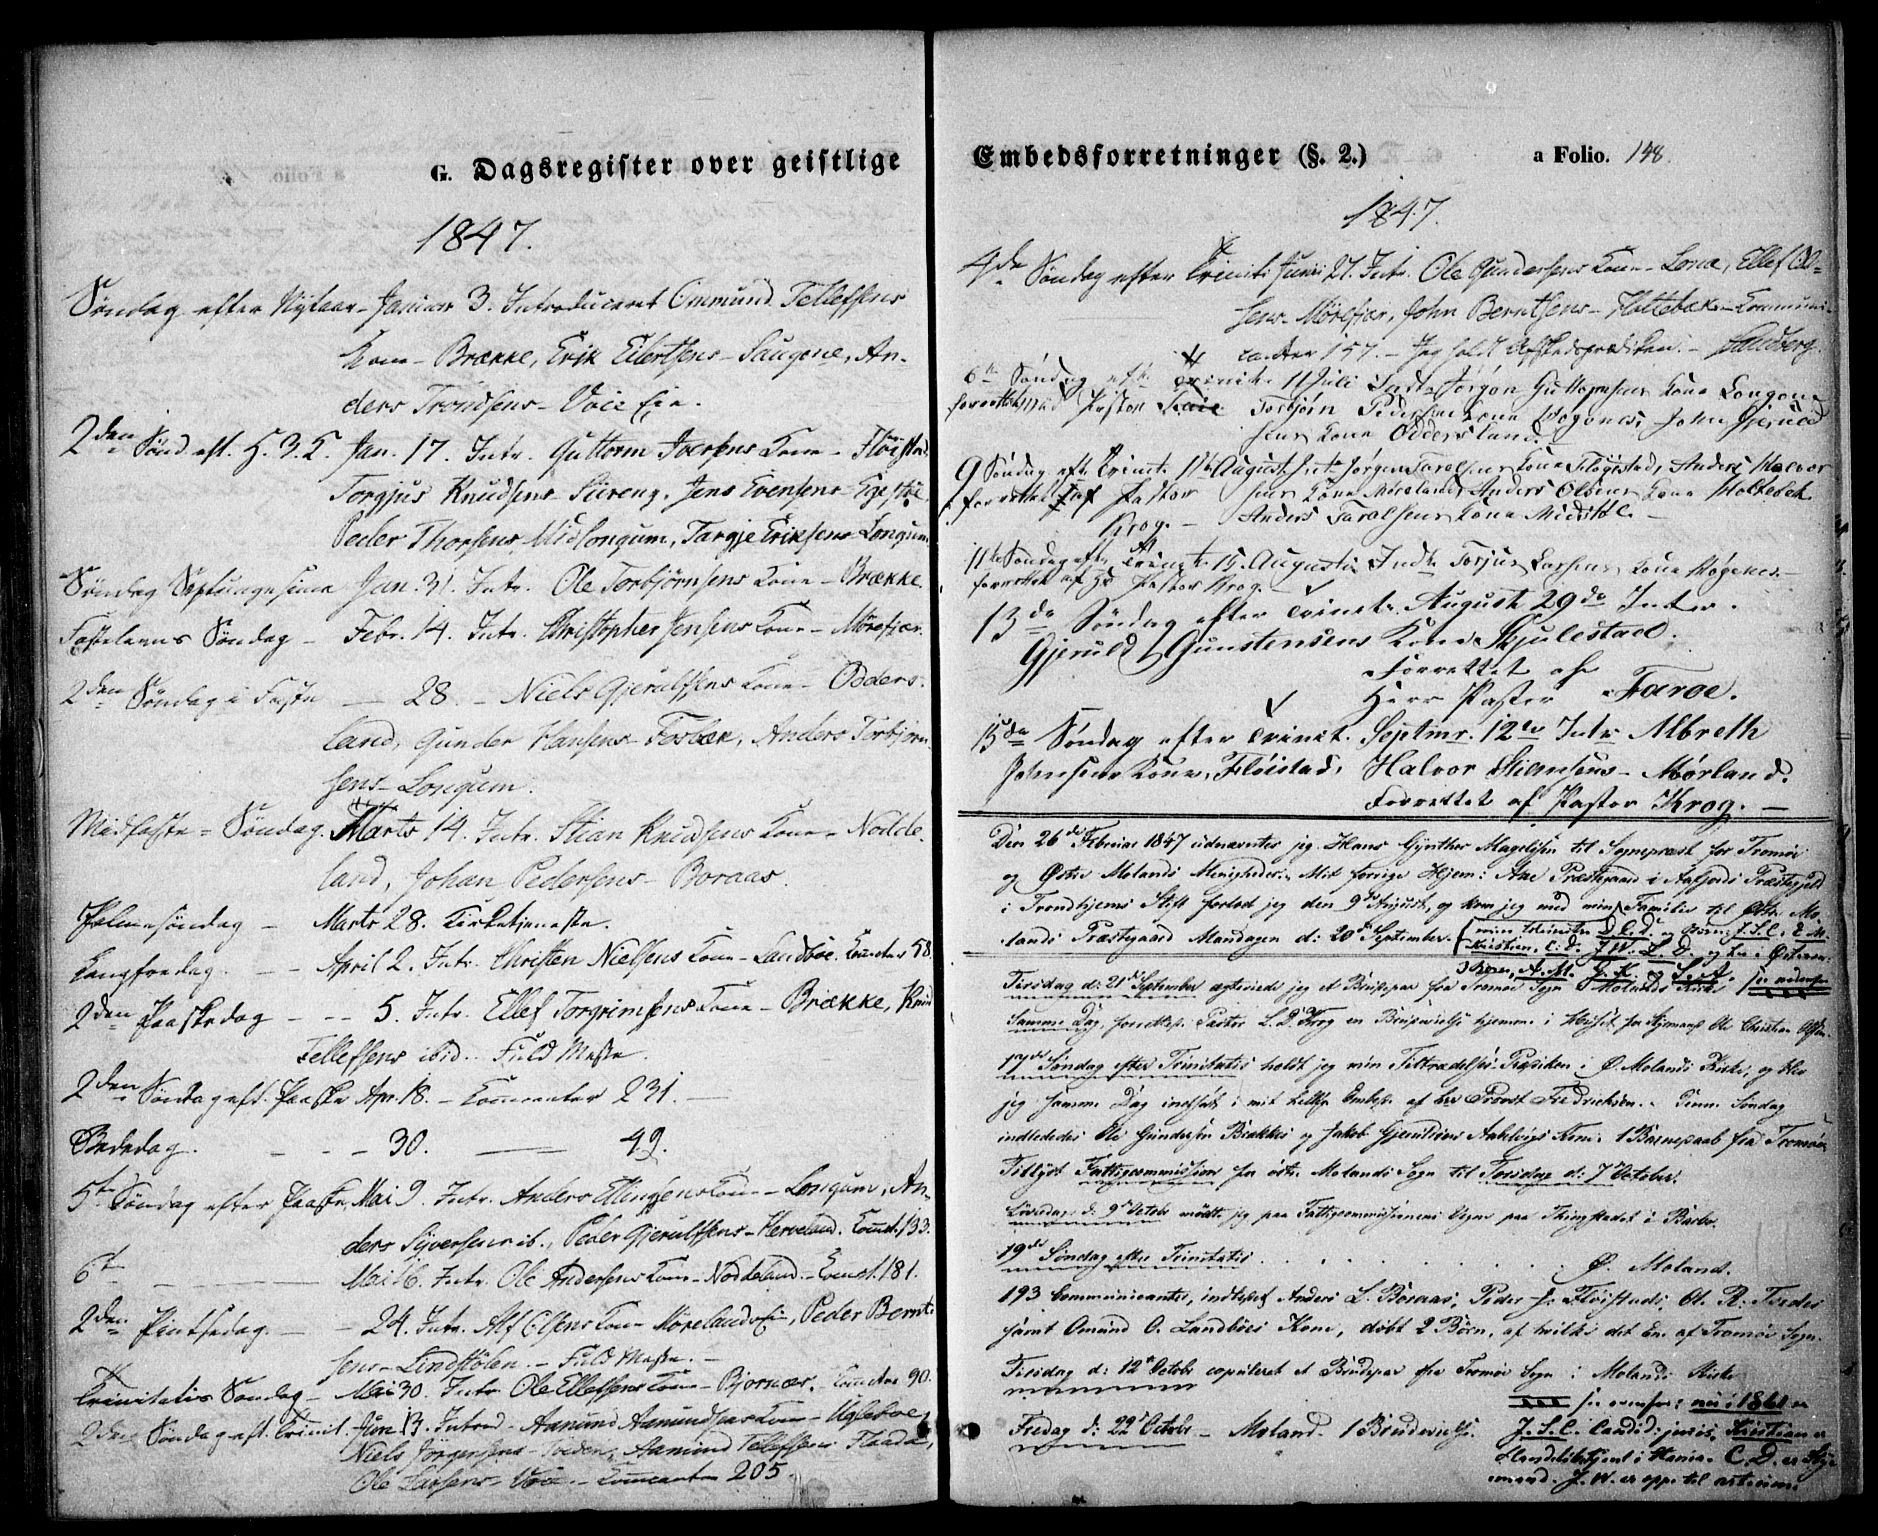 G. Dagsregister over geistlige
1847.
Søndag efter Nytaar - Januar 3. Introduceret Ommund Tellefsens
Kone - Brække, Erik Eilertsens - Saugene, An-
ders Trondsens - Voie Eie.
2den Sønd. eft. H. 3. K. Jan. 17. Intr. Guttorm Iversens Kone - Fløistad,
Torgjus Knudsens - Jens Evensens -
Peder Thorsens Midlongum, Targje Eriksens - Longum
Søndag Septuagesima Jan. 31. Intr. Ole Torbjørnsens Kone - Brække.
Fastelavns Søndag - Febr. 14. Intr. Christopher Jensens Kone - Mørefjær.
2den Søndag i Faste - 28. - Niels Gjerulfsens Kone - Odders-
land, Gunder Hansens - Fosbæk, Anders Torbjørn-
sens - Longum.
Midfaste - Søndag. Marts 14. Intr. Stian Knudsens Kone - Nodde-
land, Johan Pedersens - Boraas.
Palmesøndag - Marts 28. Kirketjeneste.
Langfredag. - April 2. Intr. Christen Nielsens Kone - Landbøe. 58.
2den Paaskedag - - 5. Intr. Ellef Torgrimsens Kone - Brække, Knud
Tellefsens ibid. Fuld Messe.
2den Søndag eft. Paaske Apr. 18. - Communicanter 231. -
Bededag. - - - 30. - 49.
5te Søndag efter Paaske, Mai 9. Intr. Anders Ellingsens Kone - Longum, An-
ders Syversens ib., Peder Gjerulfsens - Herveland. Comt. 133.
6te - Mai 16. Intr. Ole Andersens Kone - Noddeland. - Comct. 181.
2den Pintsedag. - - 24. Intr. Alf Olsens Kone Mørelands Eie, Peder Bernt-
sens - Lindstølen. - Fuld Messe. -
Trinitatis Søndag - Mai 30. Intr. Ole Ellefsens Kone - Bjornær. 90.
2den Søndag eft. Trinit. Jun. 13. Introd. Aamund Aamundsens Kone - Ugleboe,
Niels Jørgensens - Aamund Tellefsens Flaada,
Ole Larsens - Voie. - Communicanter 205.
Embedsforretninger (§. 2.) a Folio. 148.
1847.
4de Søndag efter Trinit. Juni 27. Intr. Ole Gundersens Kone - Lona, Ellef Ol-
sens - Mørefjær, John Berntsens - Holtebek - Communi-
canter 157. - Jeg holdt Afskedsprædiken. - Sandberg.
6te Søndag eft. Trinit. 11 Juli Indt. Jørgen Guttormsens Kone Longum
forrettet ved Pastor Faroe Torbjørn Pedersens Kone Vogones, John Gjeruld
sens Kone Oddersland.
9 Søndag eft. Trinit. 1ste August Indt. Jørgen Taraldsens Kone Fløistad, Anders Halvor
forrettet af Pastor sens Kone Møreland, Anders Olsens Kone Holtebek
Krog. - Anders Taralsens Kone Midtstøl. -
11te Søndag efter Trinit. 15 Augusti Indt. Torjus Larsens Kone Vogenes. -
forrettet af Hr Pastor Krog. -
13de Søndag efter Trinit. August 29de Intr.
Gjeruld Gunstensens Kone Skjulestad.
Forrettet af
Herr Pastor Faroe.
15de Søndag efter Trinit. Septmr. 12te Intr. Albreth
Johnsens Kone, Fløistad, Halvor Stiansens - Mørland.
Forrettet af Pastor Krog. -
Den 26de Februar 1847 udnævntes jeg Hans Gynther Magelssen til Sognepræst for Tromøe
og Østre Molands Menigheder. Mit forrige Hjem: Aae Præstegaard i Aafjords Præstegjeld
i Trondhjems Stift forlod jeg den 9de August, og kom jeg med min Familie til Østre Mo-
lands Præstegaard Mandagen d: 20de September.
Tirsdag d: 21de September ægteviede jeg et Brudepar fra Tromøe Sogn i Molands Kirke
Samme Dag forrettede Pastor L. D. Krog en Brudevielse hjemme i Huset for Styrmand Ole Christian
17de Søndag efter Trinitatis holdt jeg min Tiltrædelses-Prædiken i Ø. Molands Kirke, og blev
jeg samme Dag indsat i mit hellige Embede af Hr Provst Fredriksen. - Denne Søndag
indlededes Ole Gundersen Brækkes og Jakob Gjerulsens Kone. 1 Barnedaab fra Tromøe
Tillyst Fattigcommission for østre Molands Sogn til Torsdag d: 7 October.
Løverdag d: 9de Octobr mødte jeg paa Fattigcommissionens Vegne paa Thingstedet i Barbo.
19de Søndag efter Trinitatis . . . . . . . Ø. Moland.
193 Communicanter, indledet Anders L. Boraas, Peder J. Fløistads, Ol. R.
samt Omund O. Landbøes Kone, døbt 2 Børn, af hvilke det Ene af Tromøe Sogn.
Tirsdag d: 12te Octobr copuleret et Brudepar fra Tromøe Sogn i Molands Kirke
Fredag d: 22de Octobr - Moland. 1 Brudevielse.
see ovenfor: nu i 1861 er
J.S.C. Candid: juris, Kristian er
Handelsbetjent i C.D. er Styr
mand. J.W. er opp. til artium.